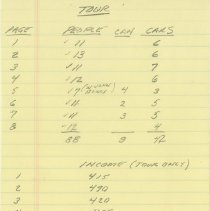 TOUR
PAGE PEOPLE CAN CARS
1 ✓11 6
2 ✓13 6
3 ✓11 7
4 ✓12 6
5 ✓7 4 3
6 ✓11 2 5
7 ✓11 3 5
8 ✓12 4
88 9 42
INCOME (TOUR ONLY)
1 415
2 490
3 420